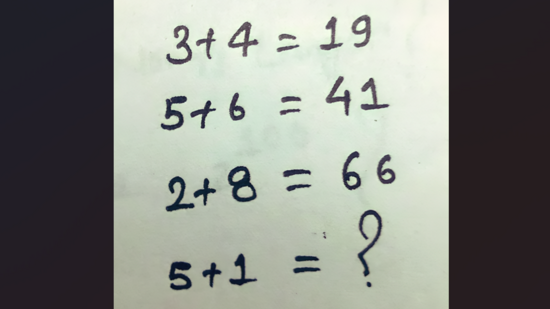 3+4 = 19
5+6 = 41
2+8 = 66
5+1 = ?